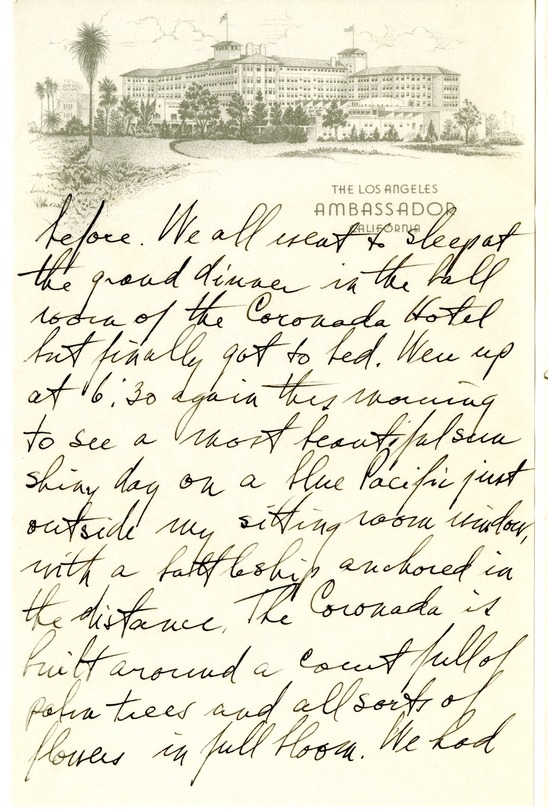 THE LOS ANGELES
AMBASSADOR
CALIFORNIA
before. We all went to sleep at
the grand dinner in the ball
room of the Coronada Hotel
but finally got to bed. Were up
at 6:30 again this morning
to see a most beautiful sun
shiny day on a blue Pacific just
outside my sitting room window,
with a battleship anchored in
the distance. The Coronada is
built around a court full of
palm trees and all sorts of
flowers in full bloom. We had